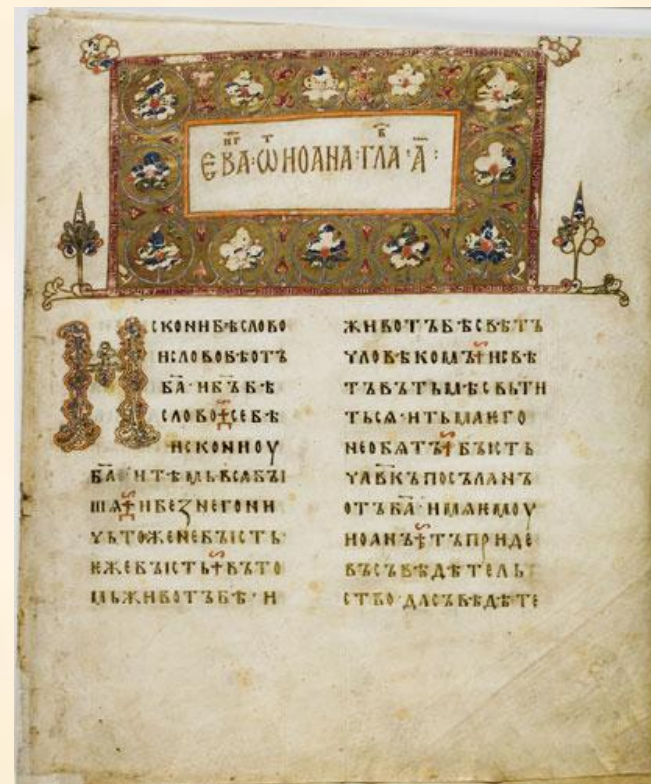 ЄВАⷢ҇·Ѡⷮ·ИОАНА·ГЛАⷡ҇·А҃:
ИСКОНИБѢСЛОВО
ИСЛОВОБѢОТЪ
Б҃А·ИБ҃ЪБѢ
СЛОВО СЕБѢ
ИСКОНИОУ
Б҃А·ИТѢМЬВСѦБЪІ
ШѦ ИБЕЗНЕГОНИ
ЧЬТОЖЕНЕБЪІСТЬ·
ЕЖЕБЪІСТЬ ВЪТО
МЬЖИВОТЪБѢ·И
ЖИВОТЪБѢСВѢТЪ
ЧЛОВѢКОМЪ ИСВѢ
ТЪВЪТЬМѢСВЬТИ
ТЬСѦ·ИТЬМАѤГО
НЕОБѦТЪ БЪІСТЬ
ЧЛ҃ВКЪПОСЪЛАНЪ
ОТЪБ҃А·ИМѦѤМОУ
ИОАНЪ ТЪПРИДЕ
ВЪСЪВѢДѢТЕЛЬ
СТВО·ДАСЪВѢДѢТЕ